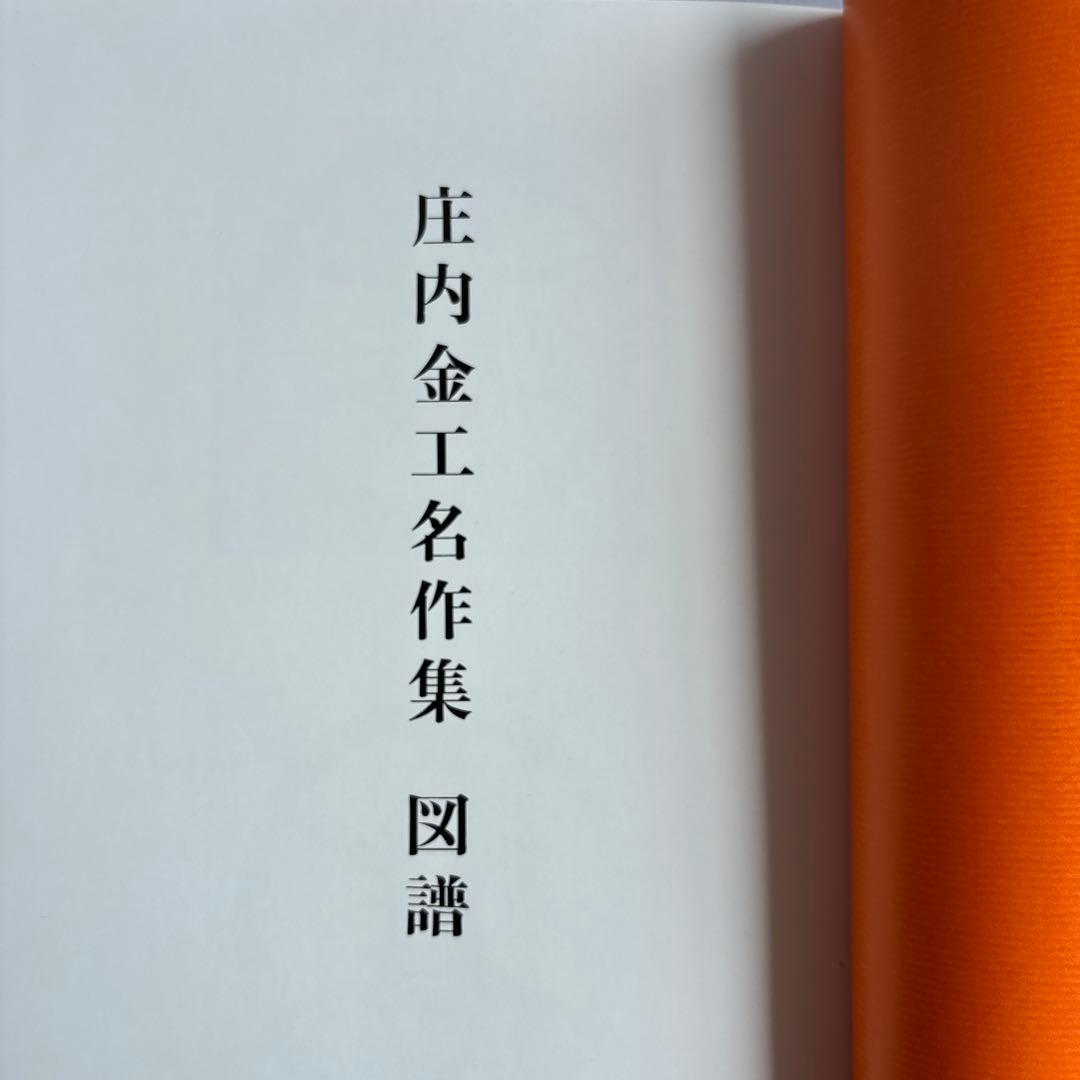 庄内金工名作集 図譜